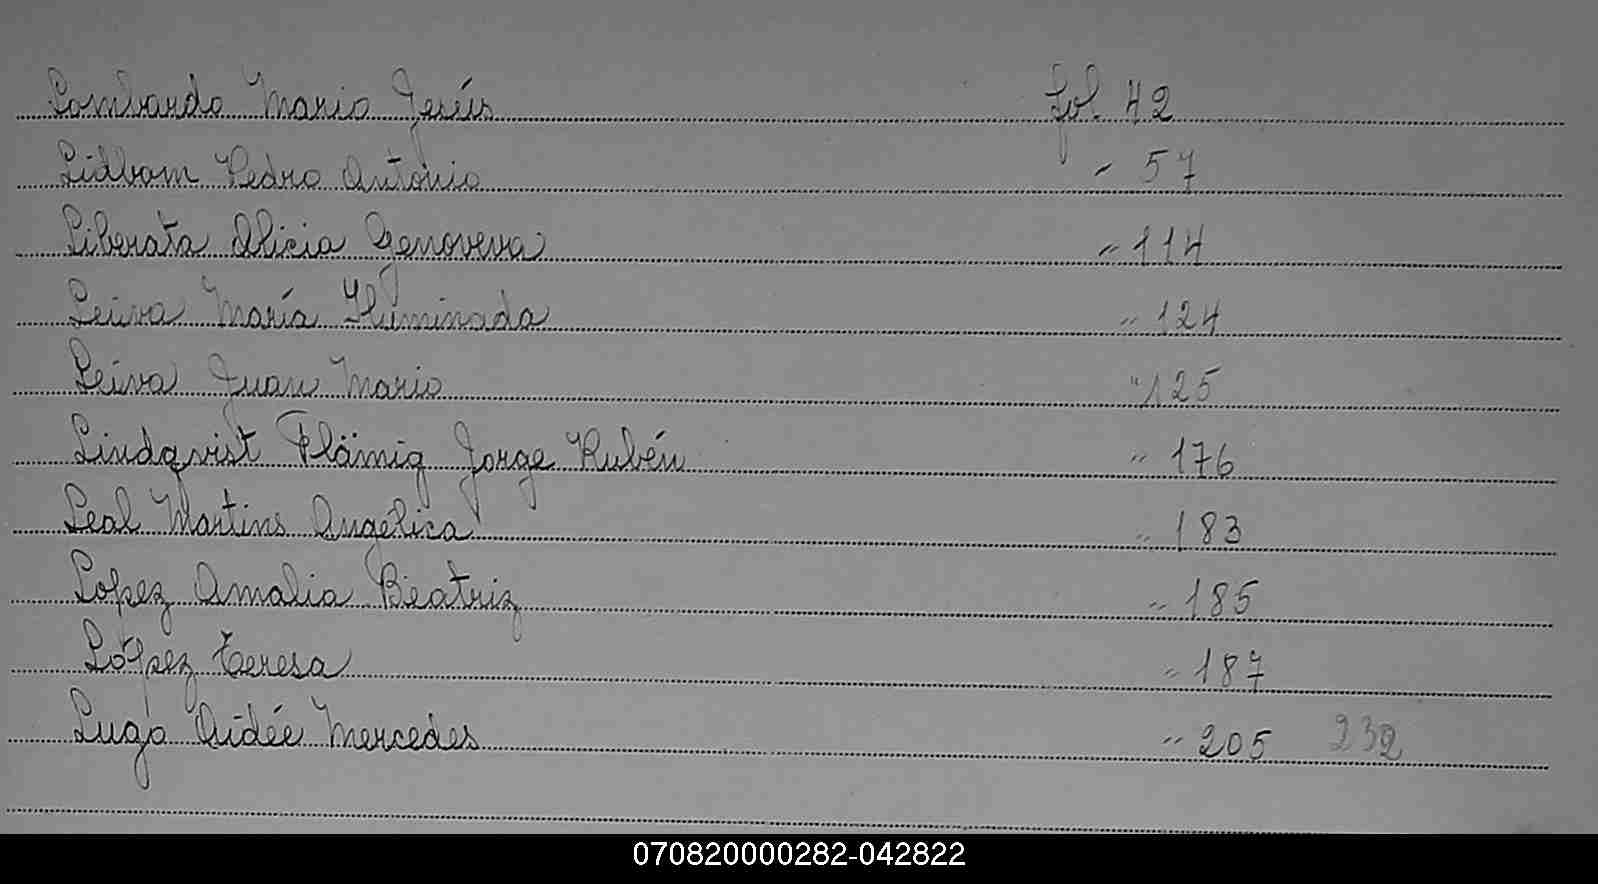 Lombardo Mario Jesús Fol. 42
Lidbom Pedro Antonio " 57
Liberata Alicia Genoveva " 114
Leiva María Iluminada " 124
Leiva Juan Mario " 125
Lindqvist Flämig Jorge Rubén " 176
Leal Martins Angélica " 183
Lopez Amalia Beatriz " 185
López Teresa " 187
Lugo Aidée Mercedes " 205 232
070820000282-042822